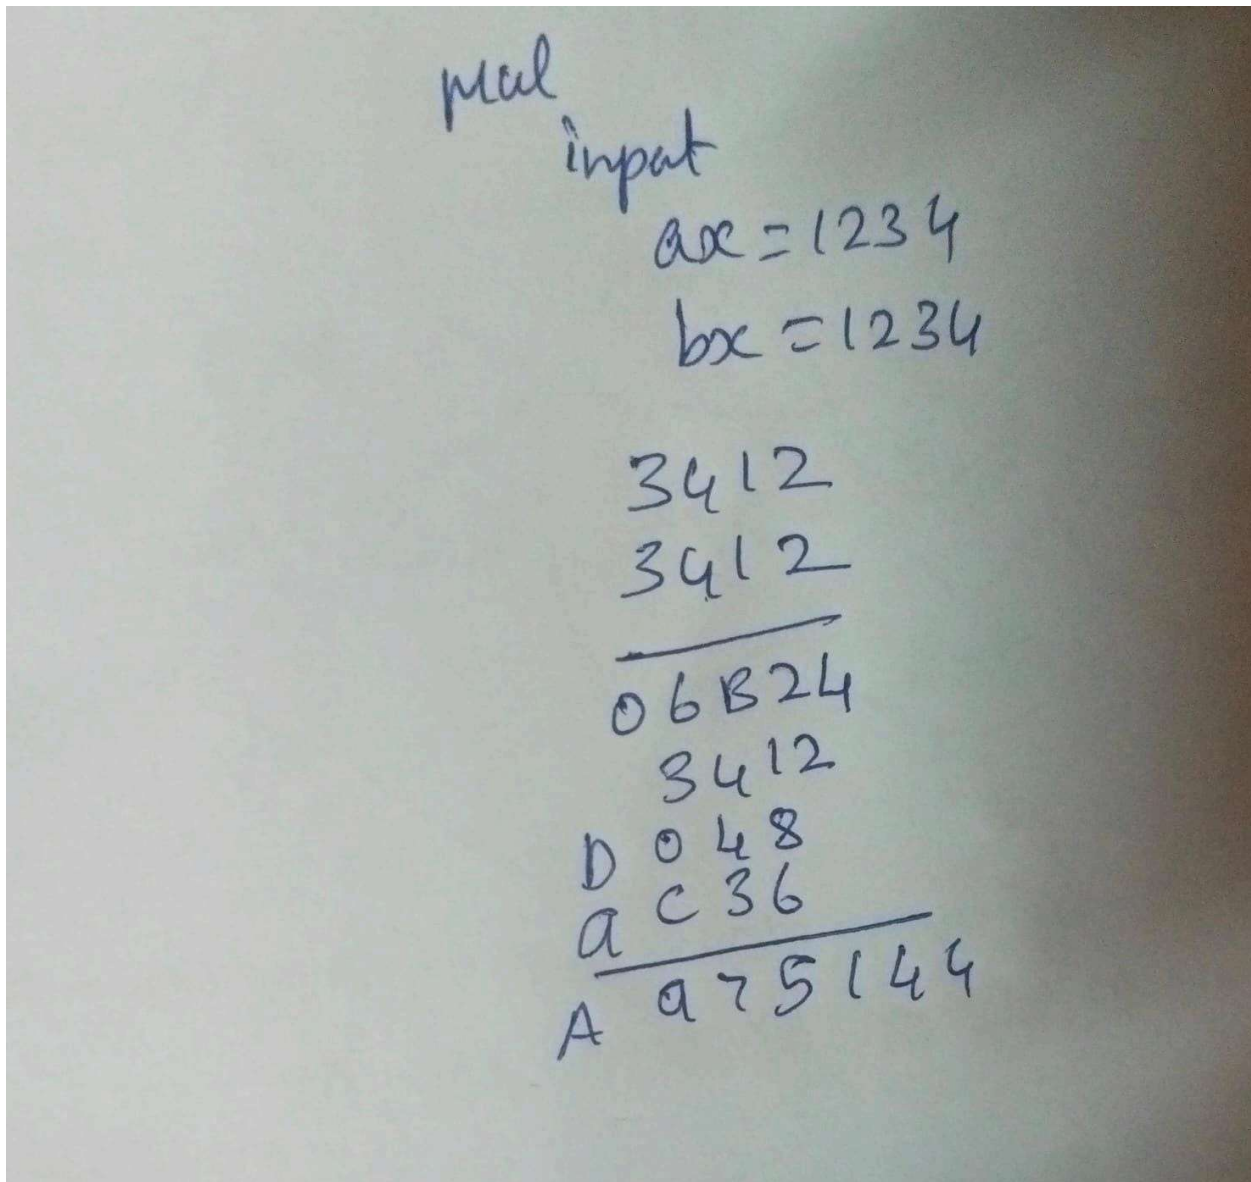 mul
input
ax = 1234
bx = 1234
3412
3412
06B24
3412
D048
9C36
A975144